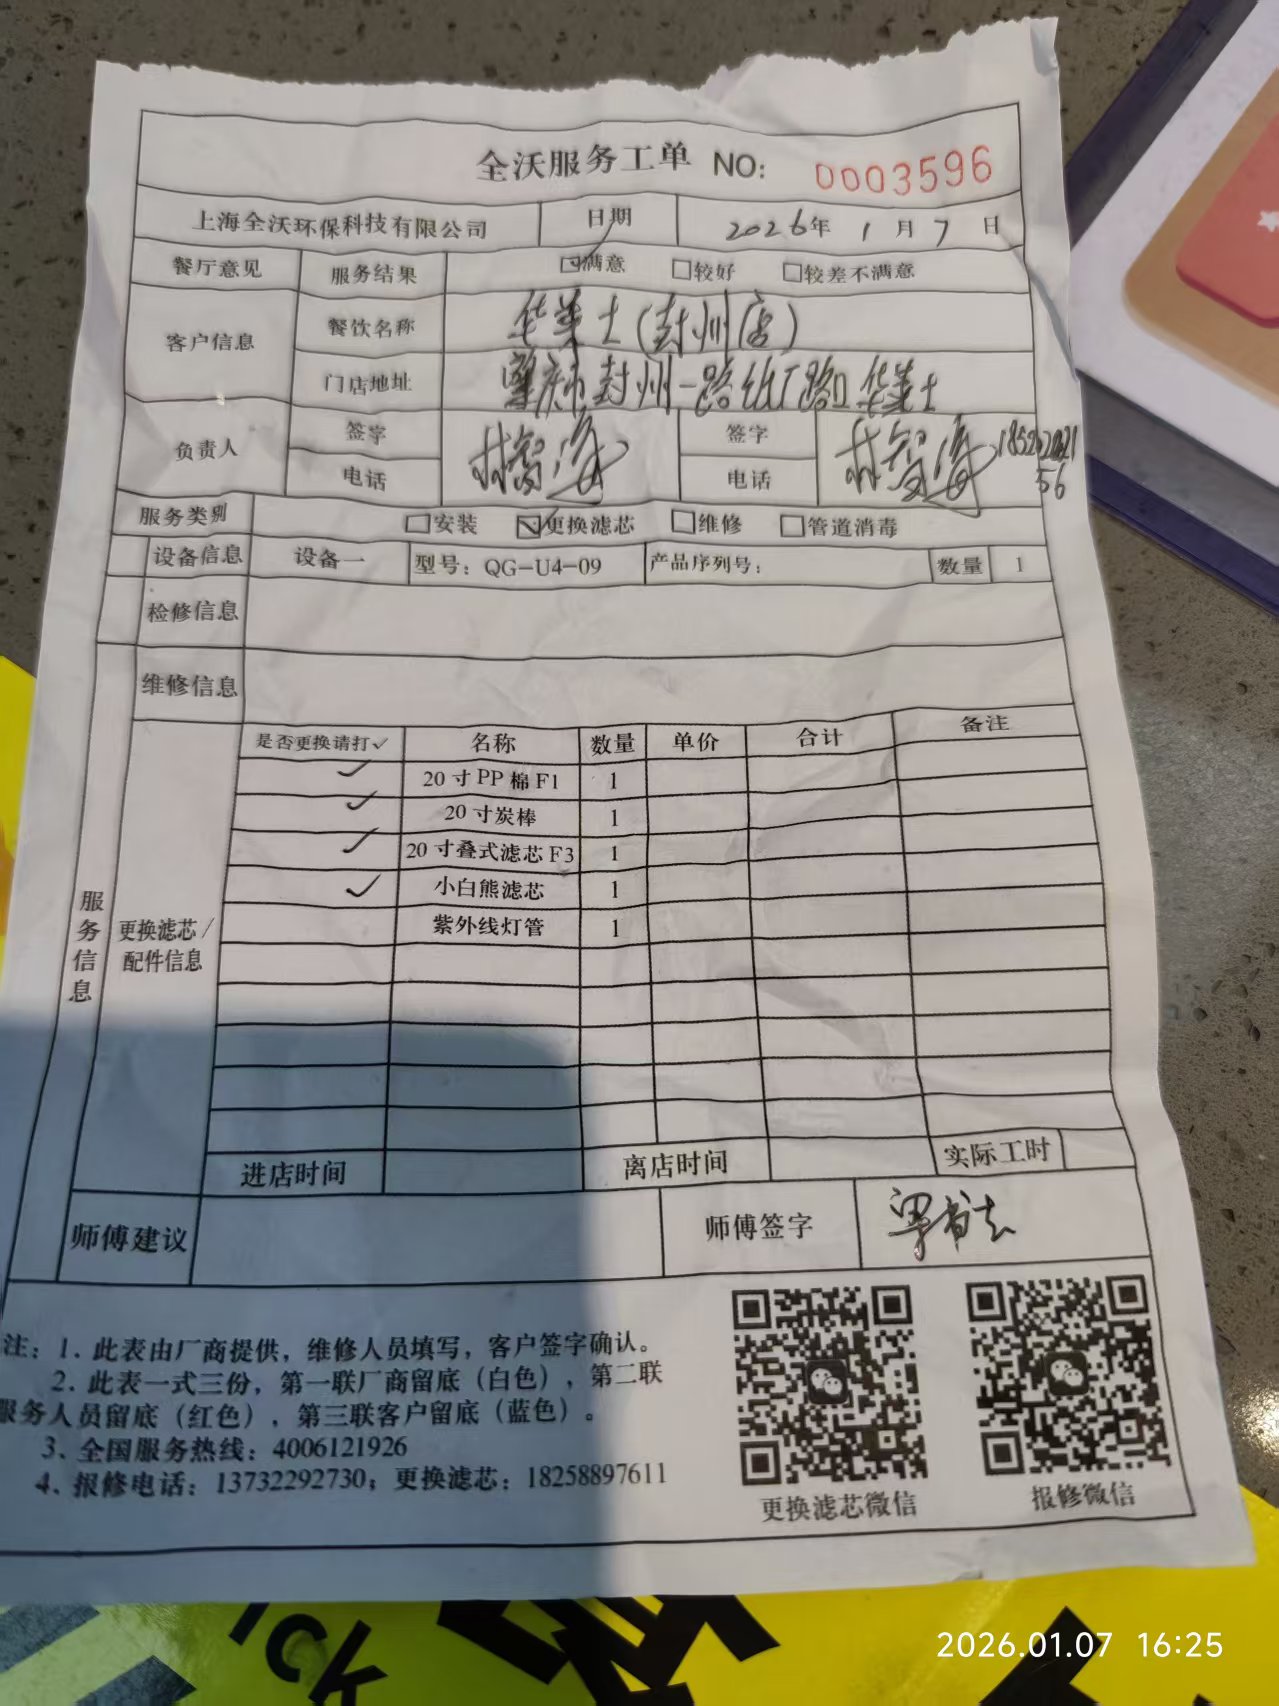 全沃服务工单 NO: 0003596
上海全沃环保科技有限公司 日期 2026年 1月 7日
餐厅意见 服务结果 ☑满意 □较好 □较差不满意
客户信息 餐饮名称 华莱士(封州店)
门店地址 肇庆市封州一路纸厂路口华莱士
负责人 签字 林智海 签字 林智海
电话 电话
服务类别 □安装 ☑更换滤芯 □维修 □管道消毒
设备信息 设备一 型号: QG-U4-09 产品序列号: 数量 1
检修信息
维修信息
服务信息
更换滤芯/配件信息
是否更换请打✓ 名称 数量 单价 合计 备注
✓ 20寸PP棉F1 1
✓ 20寸炭棒 1
✓ 20寸叠式滤芯F3 1
✓ 小白熊滤芯 1
紫外线灯管 1
进店时间 离店时间 实际工时
师傅建议 师傅签字
注: 1. 此表由厂商提供, 维修人员填写, 客户签字确认。
2. 此表一式三份, 第一联厂商留底(白色), 第二联
服务人员留底(红色), 第三联客户留底(蓝色)。
3、全国服务热线: 4006121926
4、报修电话: 13732292730; 更换滤芯: 18258897611
更换滤芯微信 报修微信
ick
2026.01.07 16:25